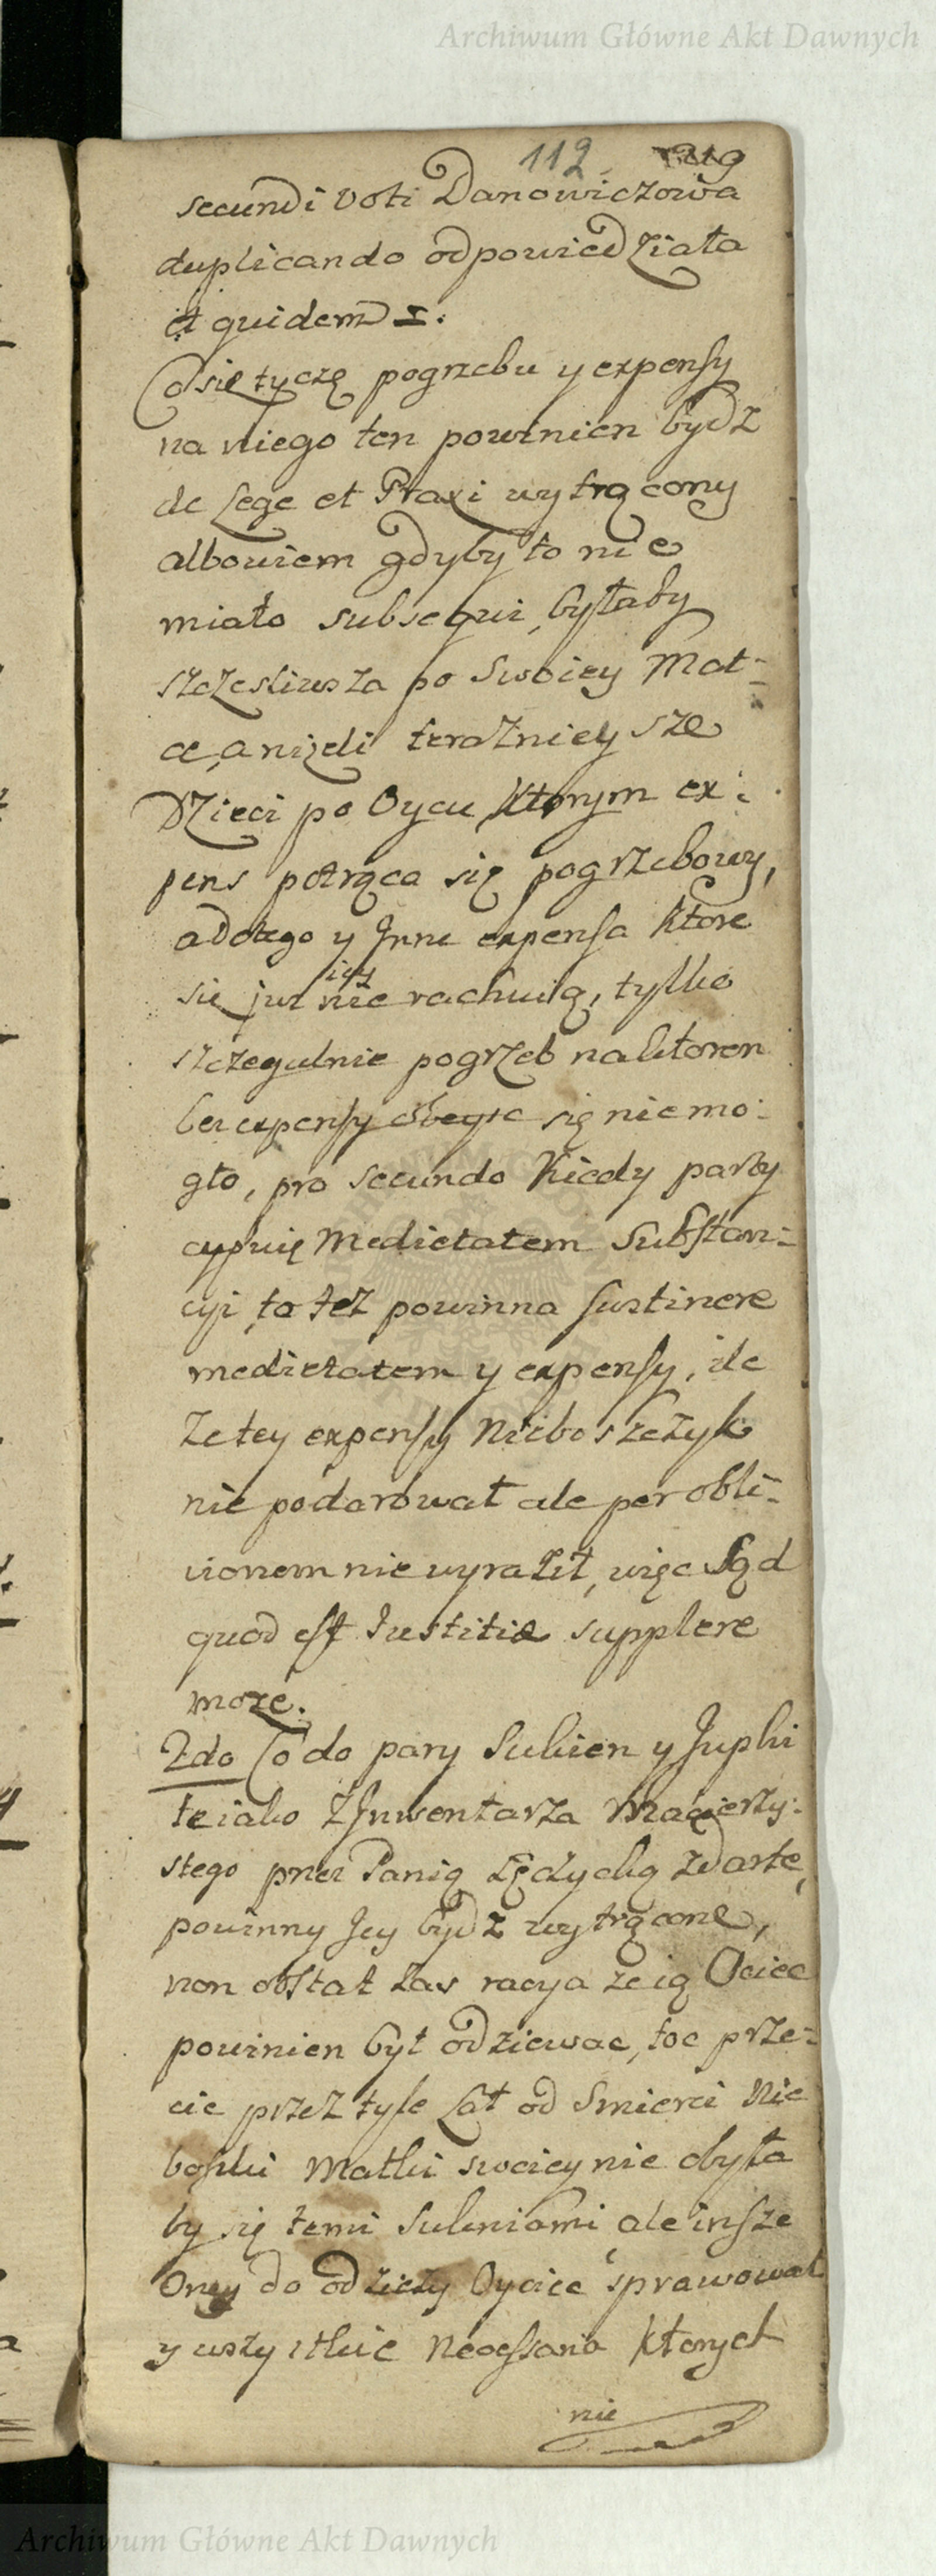 Archiwum Główne Akt Dawnych
112
secundi Voti Danowiczowa
duplicando odpowiedziała
et quidem I.
Co się tyczę pogrzebu y expensy
na niego ten powinien bydz
de Lege et Praxi wytrącony
albowiem gdyby to nie
miało subsequi, byłaby
szczesliwsza po Swoiey Mat-
ce, a niżeli teraznieysze
Dzieci po Oycu, ktorym ex:
pens potrąca się pogrzebowy,
a do tego y Jnne expensa ktore
się juz nie rachuią, tylko
szczegulnie pogrzeb na ktoren
bez expensy obeysc się nie mo:
gło, pro secundo Kiedy party
cypuię Medietatem Substan:
cyi to też powinna sustinere
medietatem y expensy, ile
że tey expensy Nieboszczyk
nie podarował ale per obli:
vionem nie wyraził, więc Sąd
quod est Iustitiæ supplere
może.
2do Co do pary Sukien y Jupki
te iako z Jnwentarza Macierzy:
stego przez Panią zdarte,
powinny Jey bydz wytrącone,
non obstat zas racya ze ią Ociec
powinien był odziewac, toc prze:
cie przez tyle Lat od Smierci Nie
boszki Matki swoiey nie obyła
by się temi Sukniami, ale insze
Oney do odzieży Oyciec sprawował
y wszystkie Necessaria ktorych
nie
Archiwum Główne Akt Dawnych